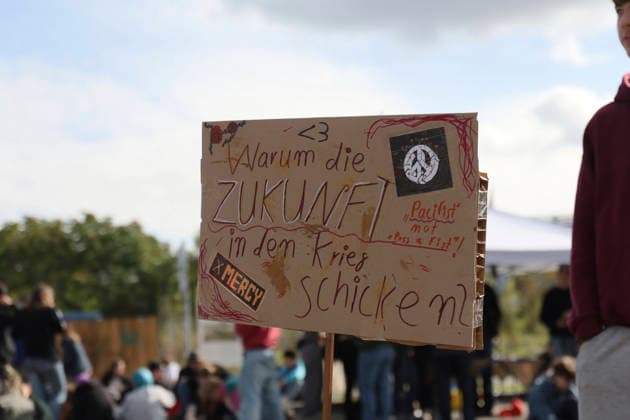 <3
Warum die
ZUKUNFT
in den Krieg
schicken?
"Pacifist"
not
"Pass a Fist"!
X MERCY